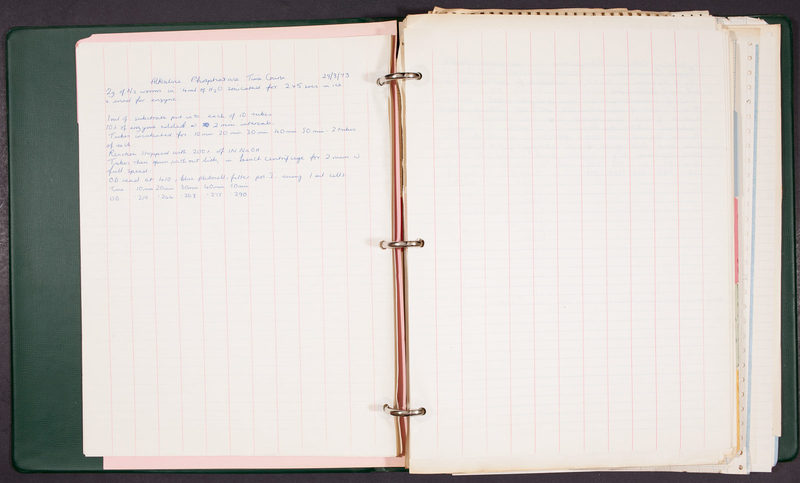 Alkaline Phosphatase Time Course 29/3/73
2g of N2 worms in 4ml of H2O sonicated for 2x45 secs in ice
& used for enzyme
1ml of substrate put into each of 10 tubes
10λ of enzyme added at 2 min intervals
Tubes incubated for 10min 20min 30min 40min 50min 2 tubes
of each
Reaction stopped with 200λ of 1N NaOH
Tubes then spun without lids in bench centrifuge for 2 mins @
full speed
OD read at 410, blue photocell, filter pos I using 1ml cells
Time 10min 20min 30min 40min 50min
OD .390